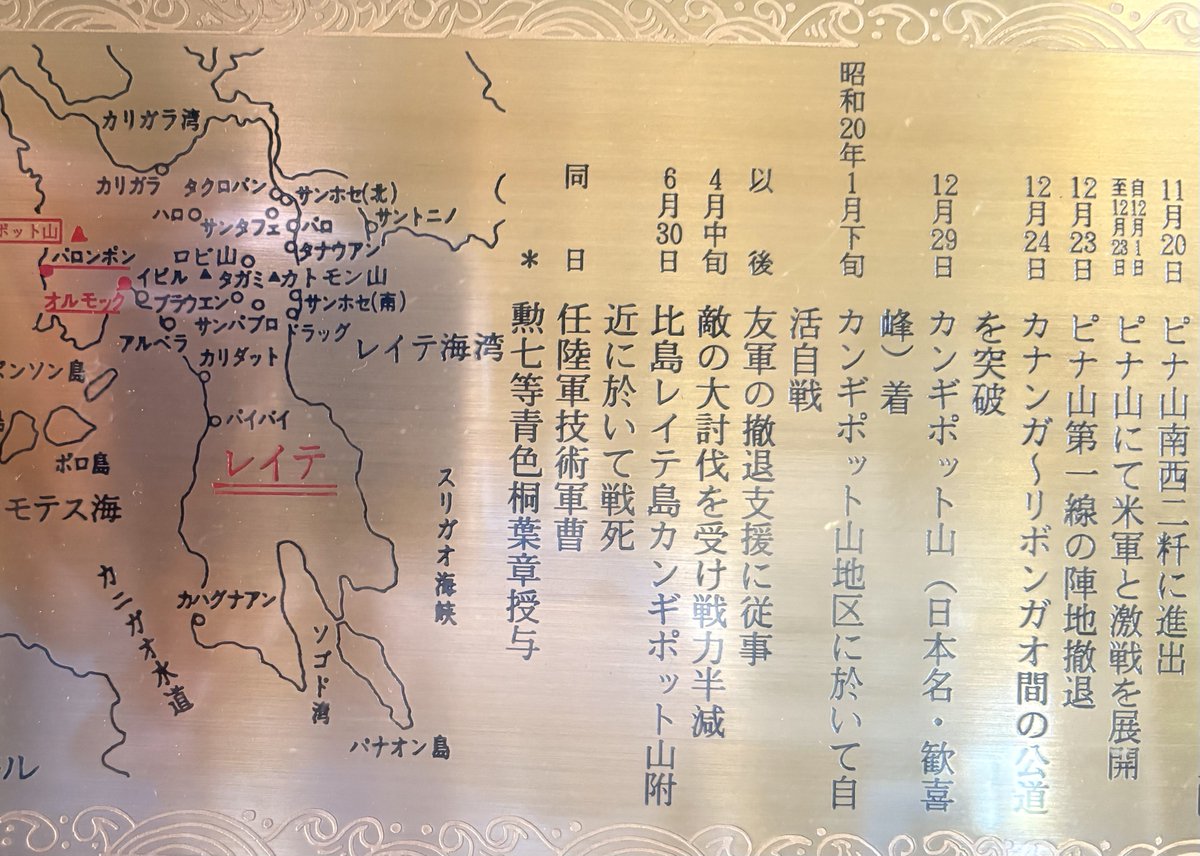 11月20日　ピナ山南西二粁に進出
自12月1日
至12月23日　ピナ山にて米軍と激戦を展開
12月23日　ピナ山第一線の陣地撤退
12月24日　カナンガ〜リボンガオ間の公道
を突破
12月29日　カンギポット山（日本名・歓喜
峰）着
昭和20年1月下旬　カンギポット山地区に於いて自
活自戦
以後　友軍の撤退支援に従事
4月中旬　敵の大討伐を受け戦力半減
6月30日　比島レイテ島カンギポット山附
近に於いて戦死
同日　任陸軍技術軍曹
＊　勲七等青色桐葉章授与
カリガラ湾
カリガラ
タクロバン
サンホセ(北)
ハロ
サンタフェ
パロ
サントニノ
ポット山
タナウアン
パロンポン
ロビ山
イピル
タガミ
カトモン山
オルモック
ブラウエン
サンホセ(南)
サンパブロ
ドラッグ
アルベラ
カリダット
レイテ海湾
ンソン島
バイバイ
ポロ島
レイテ
モテス海
スリガオ海峡
カニガオ水道
カハグナアン
ソゴド湾
パナオン島
ル